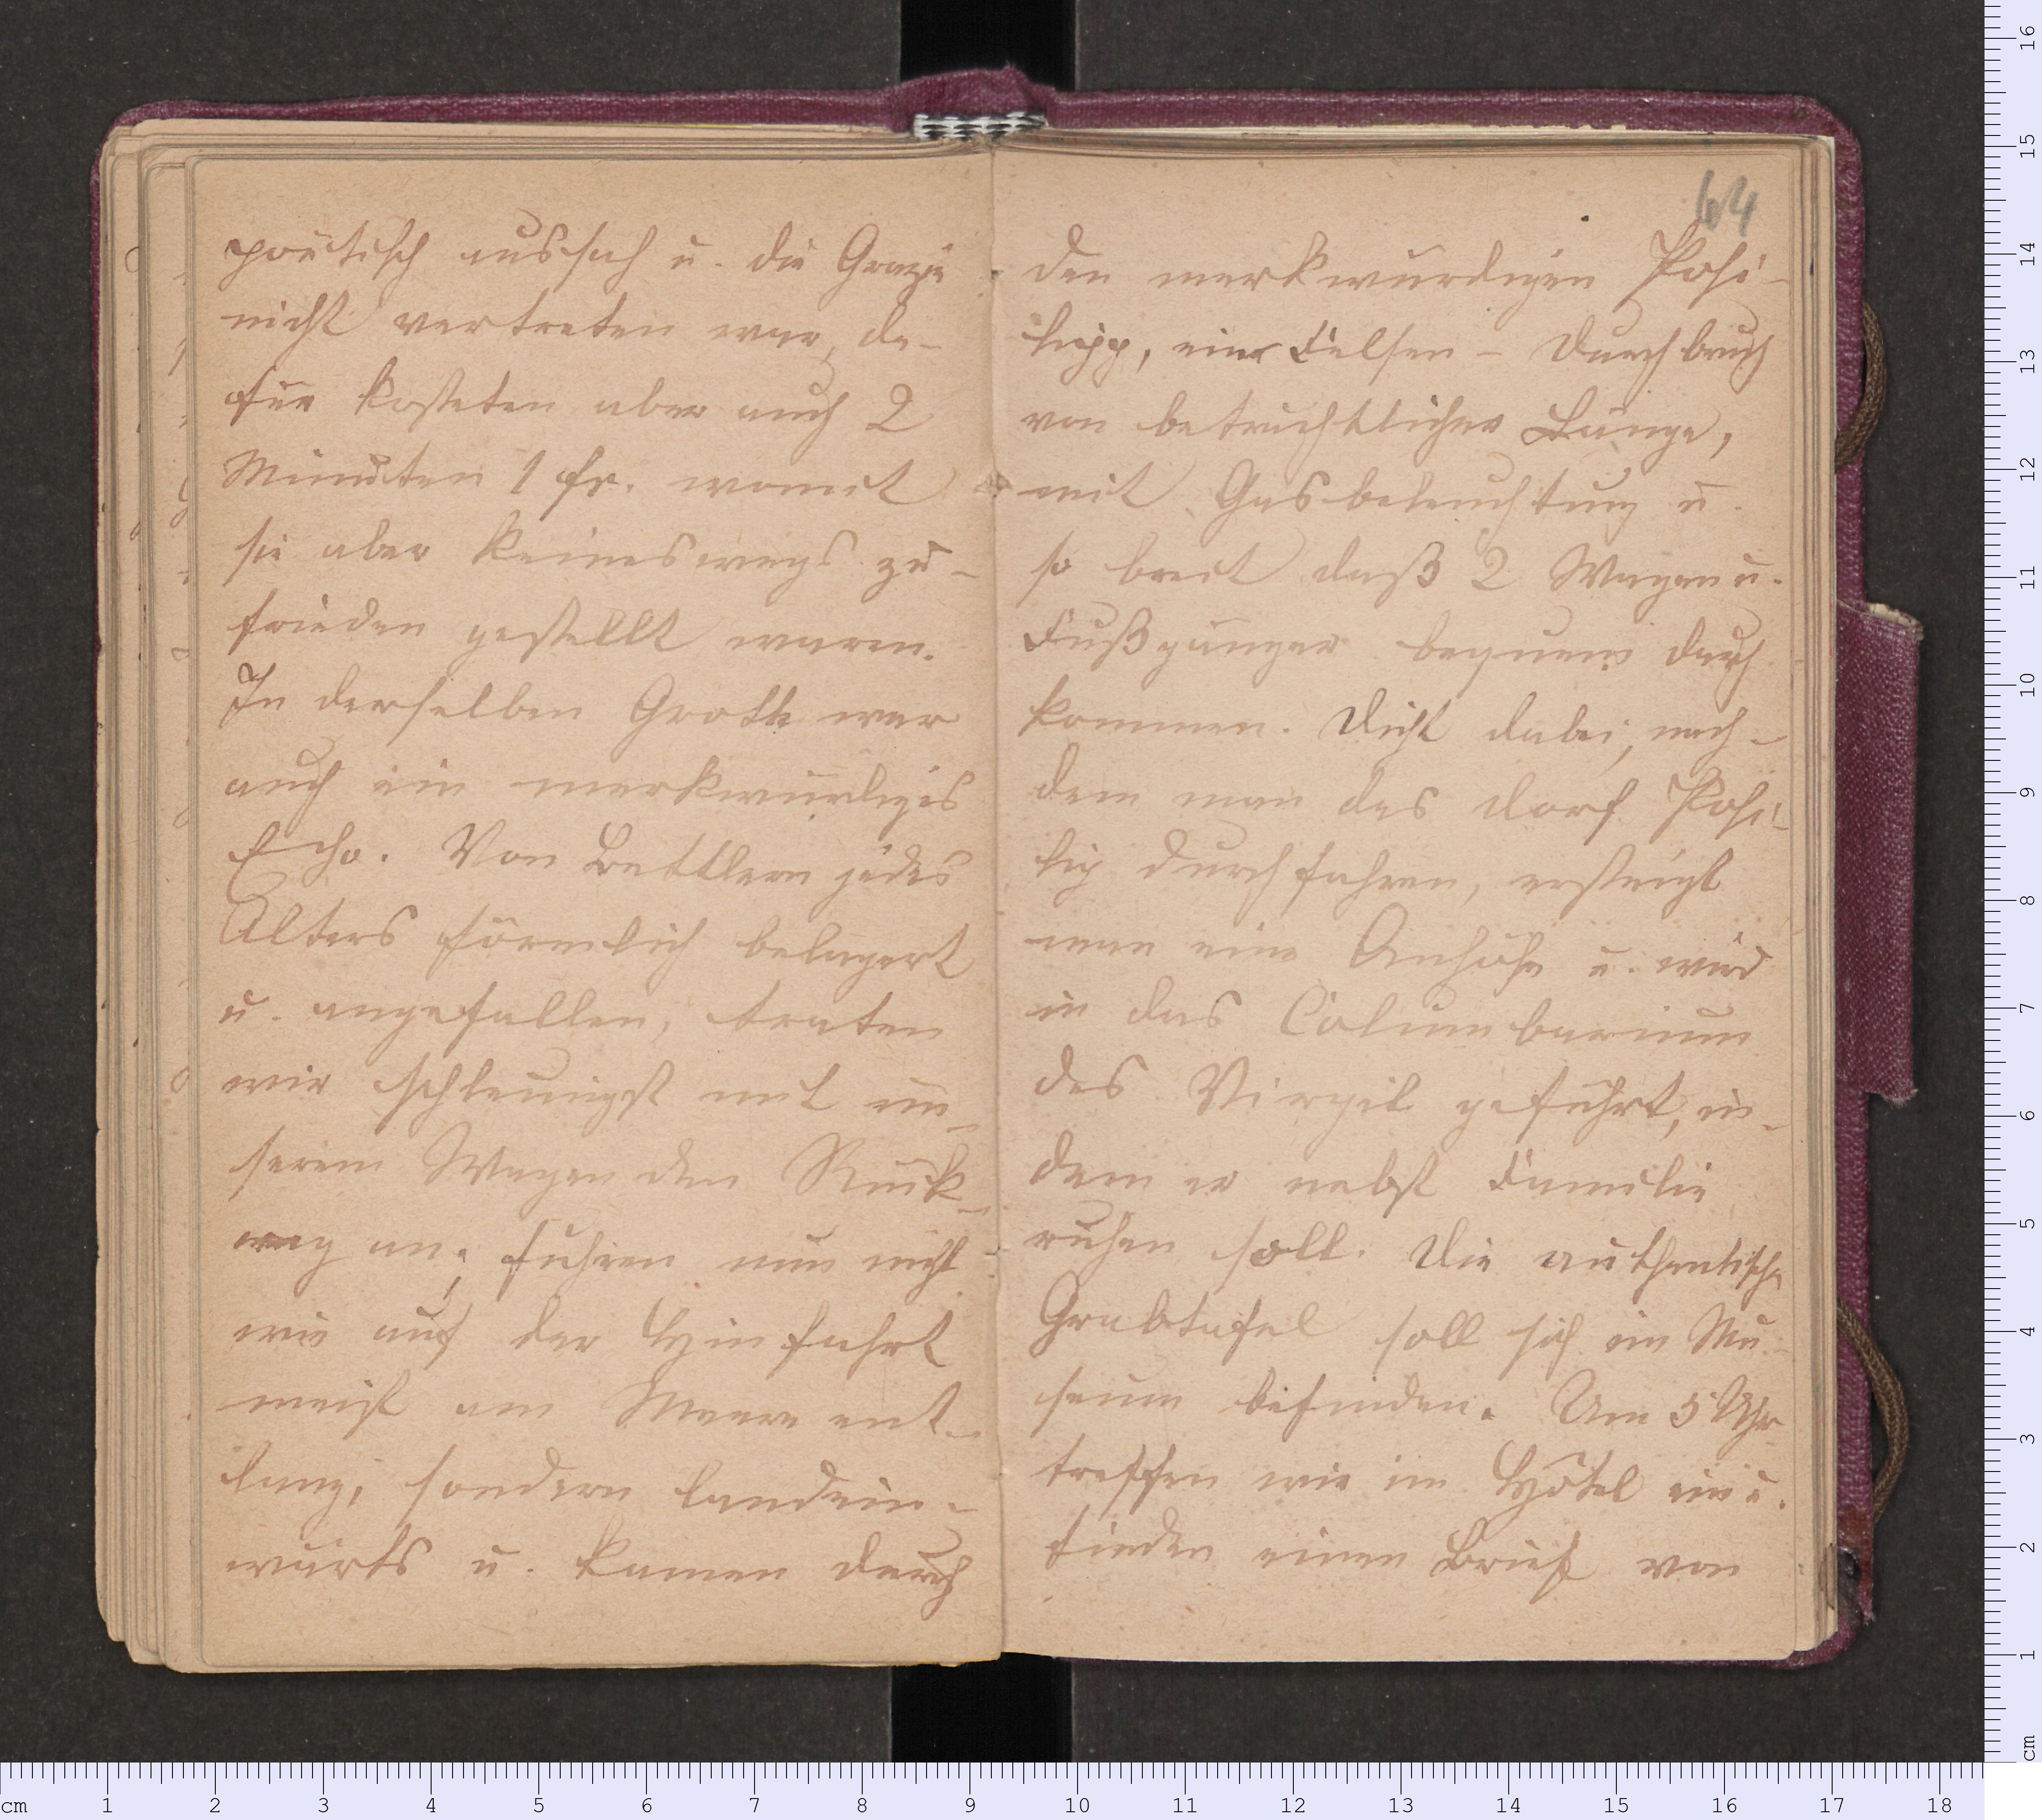 poëtisch aussah u. die Grazie
nicht vertreten war, da-
für kosteten aber auch 2
Minuten 1 fr. womit
sie aber keineswegs zu-
frieden gestellt waren.
In derselben Grotte war
auch ein merkwürdiges
Echo. Von Bettlern jedes
Alters förmlich belagert
u. angefallen, traten
wir schleunigst mit un-
serem Wagen den Rück-
weg an, fuhren nun nicht
wie auf der Hinfahrt
meist am Meere ent-
lang, sondern landein-
wärts u. kamen durch
64
den merkwürdigen Posi-
lipp, einen Felsen-Durchbruch
von beträchtlicher Länge,
mit Gasbeleuchtung u.
so breit daß 2 Wagen u.
Fußgänger bequem durch
kommen. Dicht dabei, nach-
dem man das Dorf Posi-
lip durchfahren, ersteigt
man eine Anhöhe u. wird
in das Columbarium
des Virgil geführt, in-
dem er nebst Familie
ruhen soll. Die authentische
Grabtafel soll sich im Mu-
seum befinden. Um 5 Uhr
treffen wir im Hôtel ein u.
finden einen Brief von